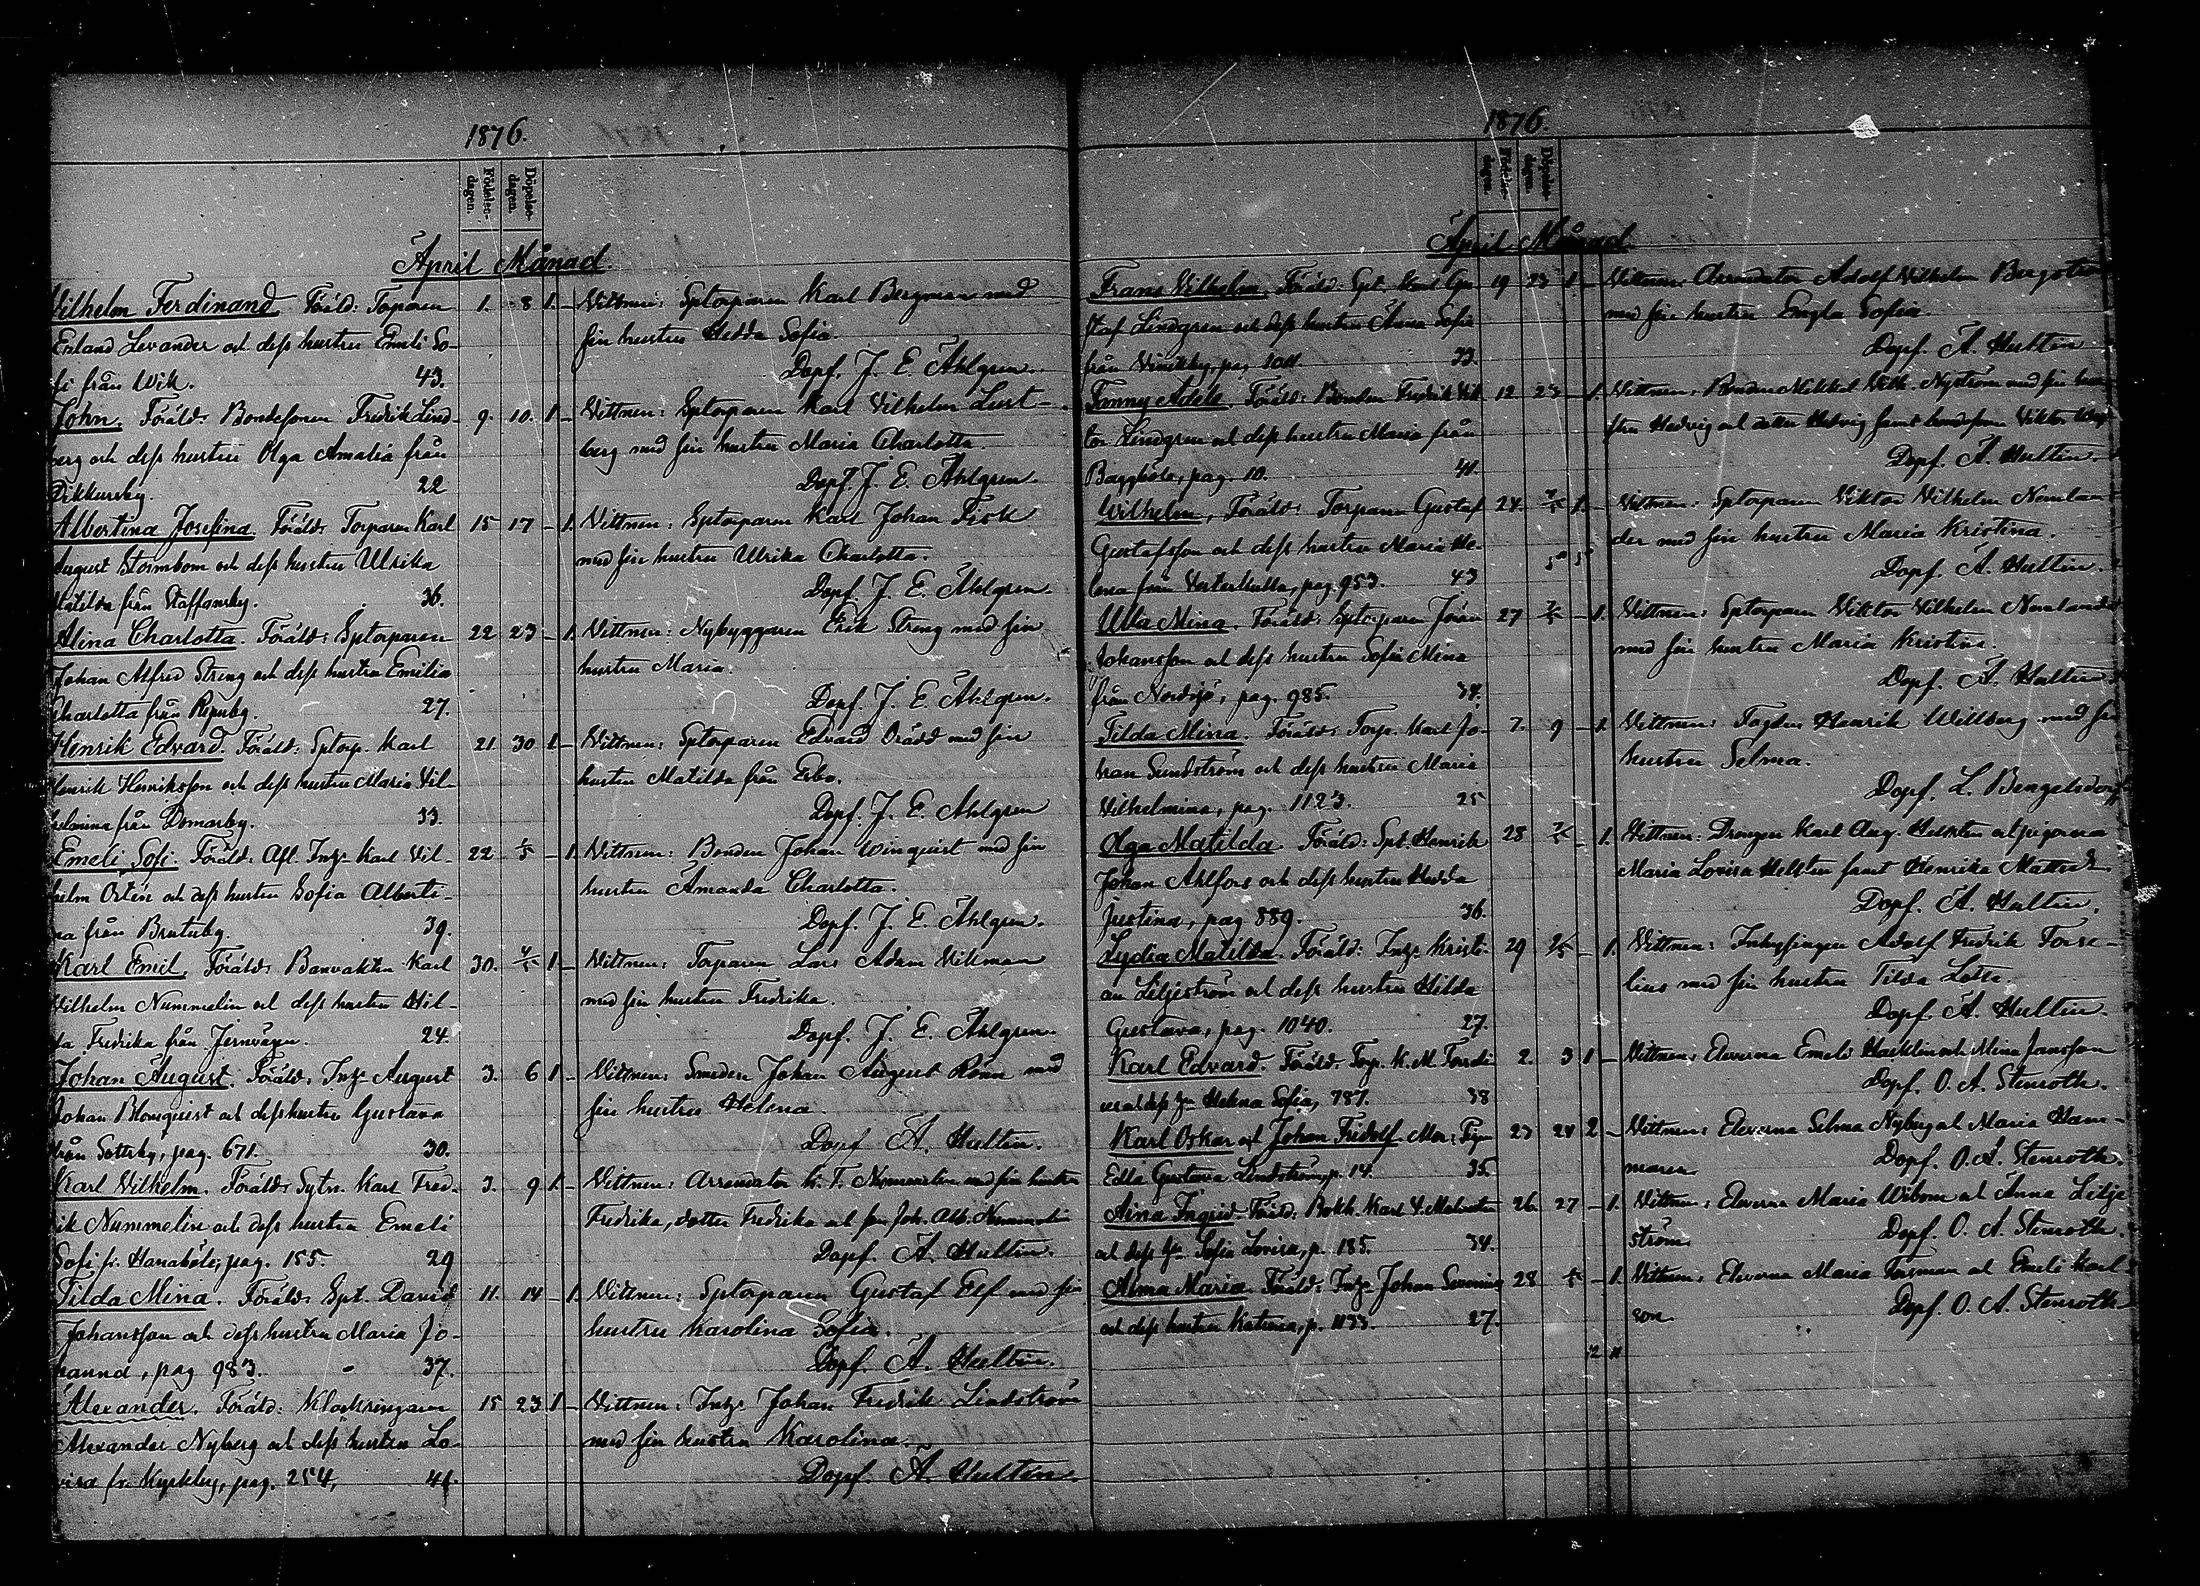 1876.
Födelse-dagen.
Döpelse-dagen.
April Månad.
Vilhelm Ferdinand. Föräld: Torparen 1. 8 1. – Vittnen: Sptorparen Karl Bergman med
Erland Levander och dess hustru Emeli So- sin hustru Hedda Sofia.
fi från Wik. 43. Dopf. J. E. Ahlgren.
John. Föräld: Bondesonen Fredrik Lind- 9. 10. 1. – Vittnen: Sptorparen Karl Vilhelm
berg och dess hustru Olga Amalia från berg med sin hustru Maria Charlotta.
Dikkursby. 22 Dopf. J. E. Ahlgren.
Albertina Josefina. Föräld: Torparen Karl 15 17 – 1. Vittnen: Sptorparen Karl Johan Fisk
August Stormbom och dess hustru Ulrika med sin hustru Ulrika Charlotta.
Matilda från Staffansby. 36. Dopf. J. E. Ahlgren.
Alina Charlotta. Föräld: Sptorparen 22 23 – 1. Vittnen: Nybyggaren Erik Streng med sin
Johan Alfred Streng och dess hustru Emilia hustru Maria.
Charlotta från Repuby. 27. Dopf. J. E. Ahlgren.
Henrik Edvard. Föräld: Sptorp. Karl 21 30 1. – Vittnen: Sptorparen Edvard Orädd med sin
Henrik Henriksson och dess hustru Maria Vil- hustru Matilda från Esbo.
helmina från Domarby. 33. Dopf. J. E. Ahlgren
Emeli Sofi. Föräld: Afl. Inhs Karl Vil- 22 – 1. Vittnen: Bonden Johan Winquist med sin
helm Ostén och dess hustru Sofia Alberti- hustru Amanda Charlotta.
na från Brutuby. 39. Dopf. J. E. Ahlgren.
Karl Emil. Föräld: Banvakten Karl 30. 1. – Vittnen: Torparen Lars Adam Vikman
Vilhelm Nummelin och dess hustru Hil- med sin hustru Fredrika.
da Fredrika från Jernvägen. 24. Dopf. J. E. Ahlgren.
Johan August. Föräld: Inhs August 3. 6 1. – Vittnen: Smeden Johan August Rönn med
Johan Blomquist och dess hustru Gustava sin hustru Helena.
från Sottsby, pag. 671. 30. Dopf A. Hultin.
Karl Vilhelm. Föräld: Sytn. Karl Fred- 3. 9 1. – Vittnen: Arrendator K. F. Nummelin med sin hustru
rik Nummelin och dess hustru Emeli Fredrika, dotter Fredrika och son Joh. Alb. Nummelin
Sofi fr. Hanaböle, pag. 155. 29 Dopf. A. Hultin.
Tilda Mina. Föräld: Spt. David 11. 14 – 1. Vittnen: Sptorparen Gustaf Elf med sin
Johansson och dess hustru Maria Jo- hustru Karolina Sofia.
hanna, pag 983. 37. Dopf. A. Hultin.
Alexander. Föräld: Klockringaren 15 23 1. – Vittnen: Inhs Johan Fredrik Lindström
Alexander Nyberg och dess hustru Lo- med sin hustru Karolina.
visa fr. Kyrkby, pag. 254, 41. Dopf. A. Hultin.
1876.
Födelse-dagen.
Döpelse-dagen.
April Månad.
Frans Vilhelm. Föräld: Spt. Karl Gu 19 23 1. – Vittnen: Arrendator Adolf Vilhelm Bergström
staf Lindgren och dess hustru Anna Sofia med sin hustru Engla Sofia.
från 33. Dopf. A. Hultin
Fanny Adele. Föräld: Bonden Fredrik Vik 12 23 – 1. Vittnen: Bonden Mikkel Vilh. Nyström med sin hu
tor Lindgren och dess hustru Maria från stru Hedvig och dotter Hedvig samt bondeson Viktor
Baggböle, pag. 10. 41. Dopf. A. Hultin.
Wilhelm. Föräld: Torparen Gustaf 24. 7/5 1. – Vittnen: Sptorparen Viktor Vilhelm Nemlan
Gustafsson och dess hustru Maria He- 5 5 der med sin hustru Maria Kristina.
lena från Vesterkulla, pag. 953. 43 Dopf. A. Hultin.
Ulla Mina. Föräld: Sptorparen Jöran 27 7/5 – 1. Vittnen: Sptorparen Viktor Vilhelm Nemlander
Johansson och dess hustru Sofia Mina med sin hustru Maria Kristina.
från Nordsjö, pag. 985. 34. Dopf. A. Hultin.
Tilda Mina. Föräld: Torp. Karl Jo- 7. 9 – 1. Vittnen: Henrik Willberg med sin
han Sundström och dess hustru Maria hustru Selma.
Vilhelmina, pag. 1123. 25 Dopf. L. Bengelsdorff
Olga Matilda. Föräld: Spt. Henrik 28 7/5 – 1. Vittnen: Drengen Karl Aug. Helsten och pigorna
Johan Ahlfors och dess hustru Hedda Maria Lovisa Helsten samt Henrika
Justina, pag 889. 36. Dopf. A. Hultin.
Lydia Matilda. Föräld: Inhs Kristi- 29 7/5 – 1. Vittnen: Inhysingen Adolf Fredrik Torse-
an Liljeström och dess hustru Hilda lius med sin hustru Tilda Lotta.
Gustava, pag. 1040. 27. Dopf. A. Hultin.
Karl Edvard. Föräld: Torp. K. M. 2. 3 1 – Vittnen: Eleverna Emeli och Mina Jansson
och dess hu Helena Sofia, 787. 38 Dopf. O. A. Stenroth.
Karl Oskar och Johan Fridolf. Mor: Pign 23 24 2 – Vittnen: Eleverna Selma Nyberg och Maria Ham-
Edla Gustava Lindström, p. 14. 35. maren Dopf. O. A. Stenroth.
Aina Ingrid. Föräld: Bokh. Karl 26. 27 – 1. Vittnen: Eleverna Maria Wibom och Anna Lilje
och dess hu Sofia Lovisa, p. 185. 34. ström. Dopf. O. A. Stenroth.
Alma Maria. Föräld: Inhs Johan 28 – 1. Vittnen: Eleverna Maria och Emeli Karl
och dess hustru Katrina, p. 1133. 27. son. Dopf. O. A. Stenroth
12 11